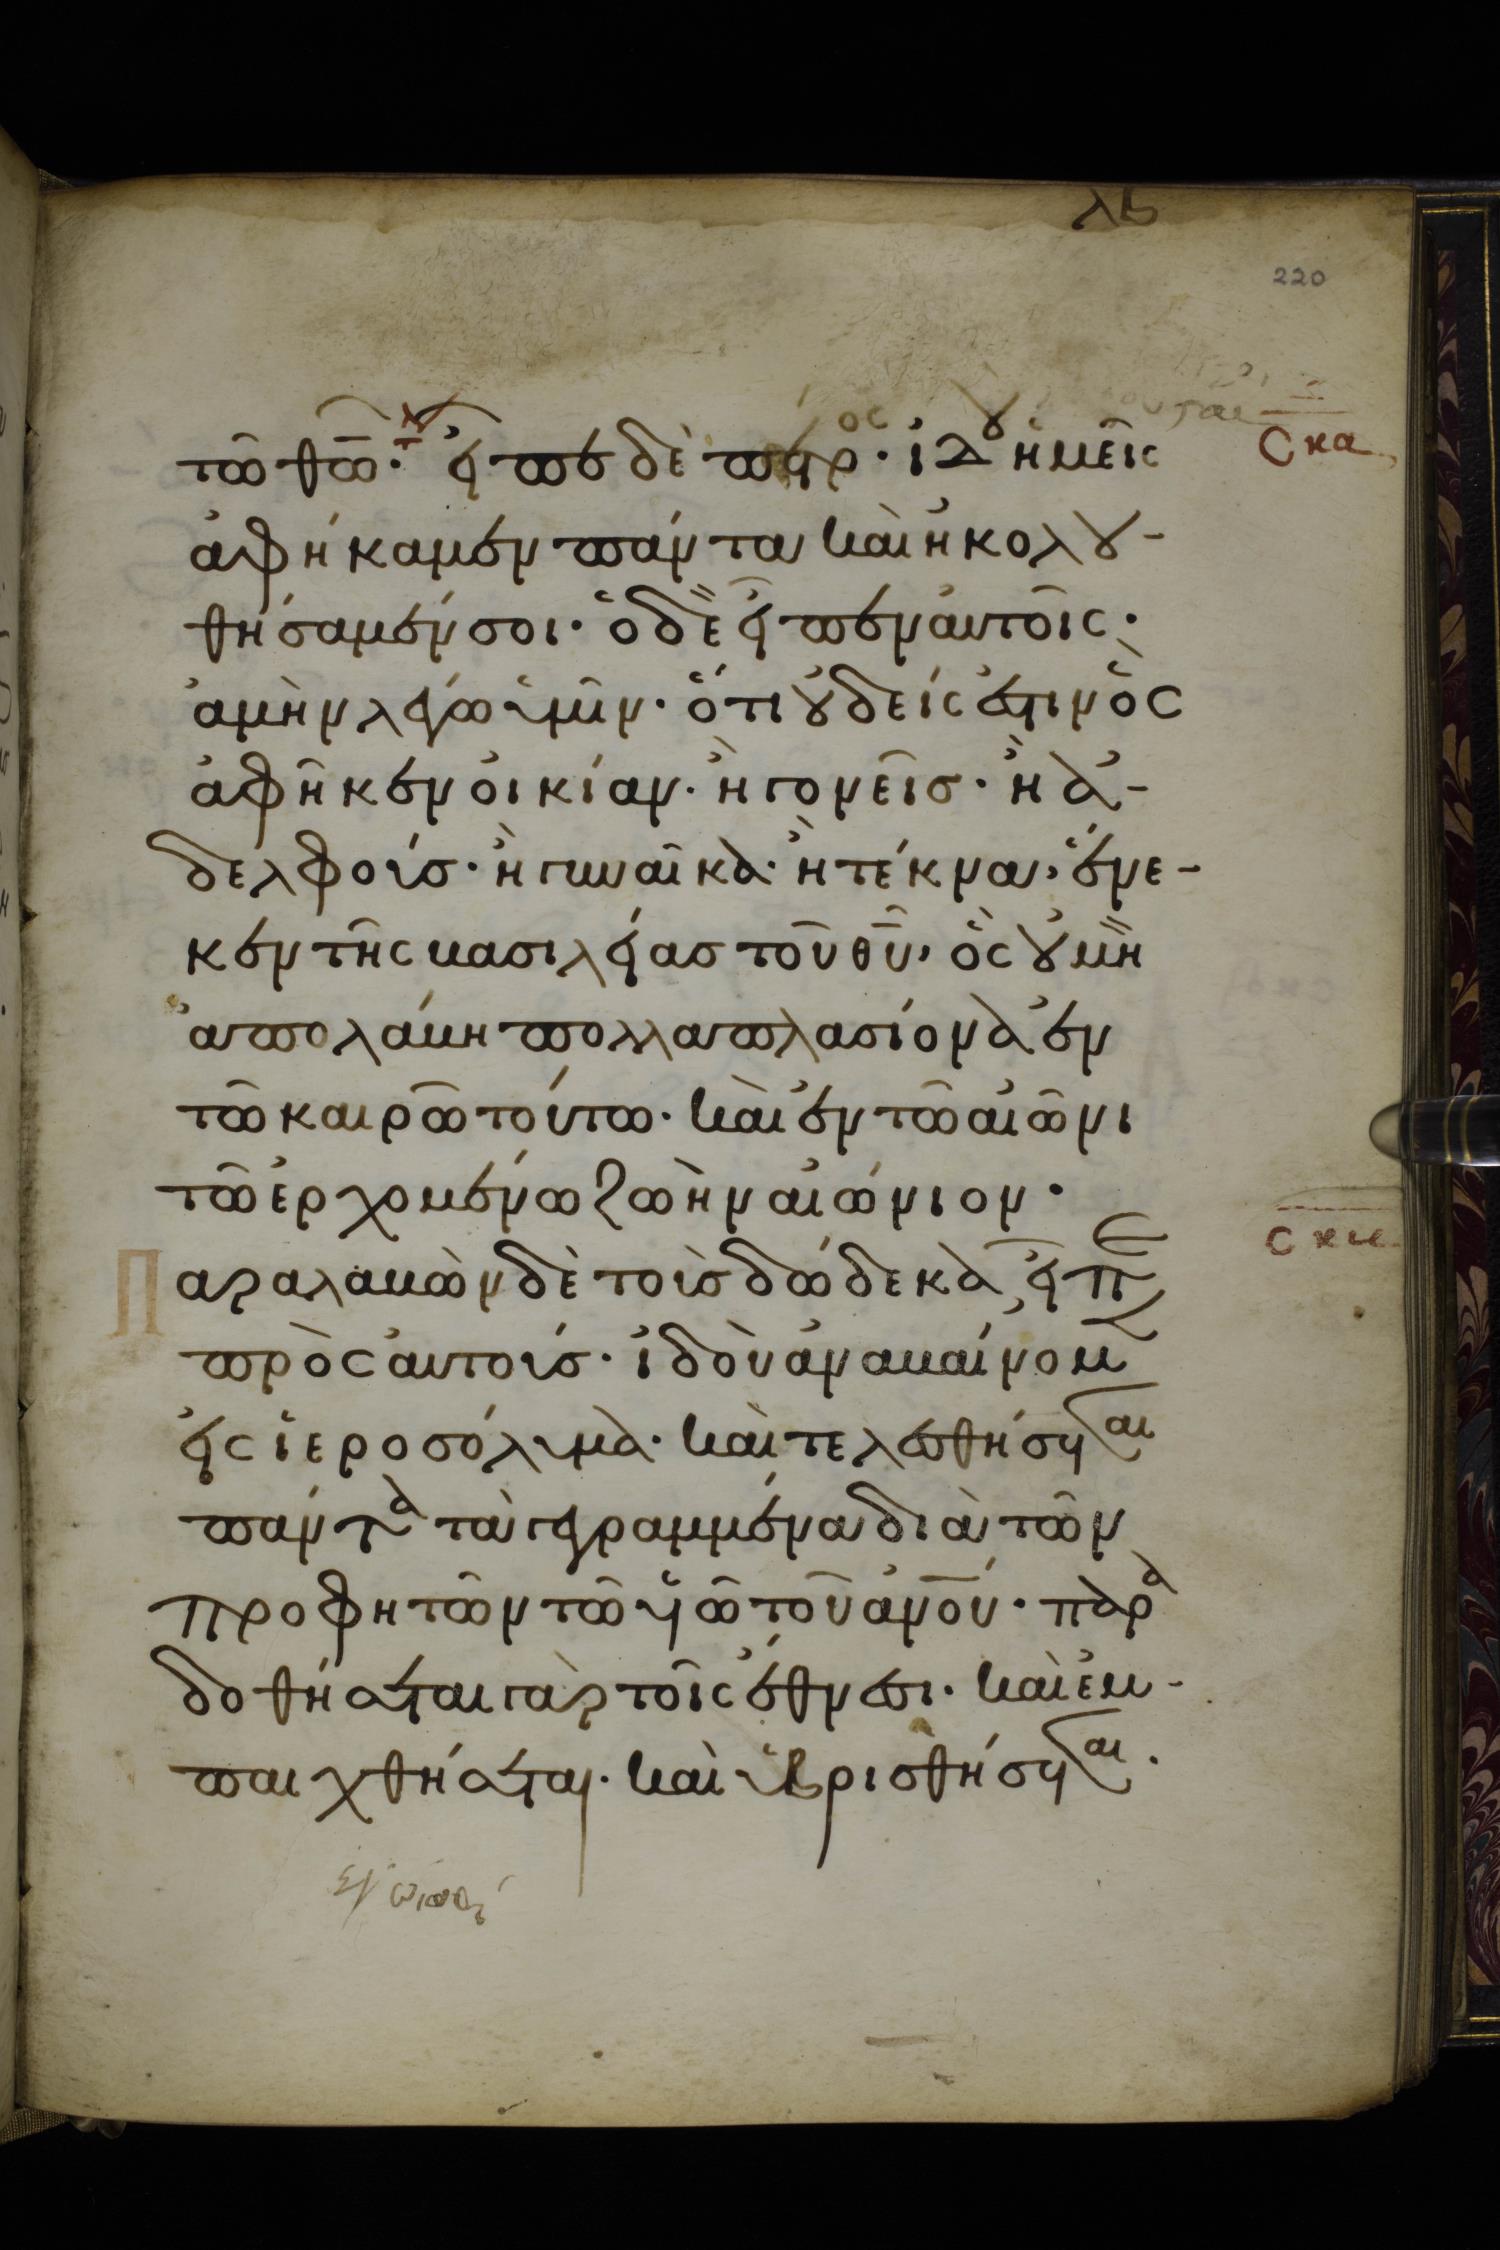 λβ
220
τῶ θω̅· εἶπε δὲ πέτρος· ἰδοὺ ἡμεῖς
σκα
ἀφήκαμεν πάντα καὶ ἠκολου-
θήσαμέν σοι· ὁ δὲ εἶπεν αὐτοῖς·
ἀμὴν λέγω ὑμῖν· ὅτι οὐδείς ἐστιν ὃς
ἀφῆκεν οἰκίαν· ἢ γονεῖς· ἢ ἀ-
δελφούς· ἢ γυναῖκα· ἢ τέκνα, ἕνε-
κεν τῆς βασιλείας τοῦ θυ̅, ὃς οὐ μὴ
ἀπολάβη πολλαπλασίονα ἐν
τῶ καιρῶ τούτω· καὶ ἐν τῶ αἰῶνι
τῶ ἐρχομένω ζωὴν αἰώνιον·
σκβ
Παραλαβὼν δὲ τοὺς δώδεκα, εἶπε
πρὸς αὐτούς· ἰδοὺ ἀναβαίνομεν
εἰς ἱεροσόλυμα· καὶ τελεσθήσεται
πάντα τὰ γεγραμμένα διὰ τῶν
προφητῶν τῶ υἱῶ τοῦ ἀν̅ο̅υ· παρα
δοθήσεται γὰρ τοῖς ἔθνεσι· καὶ ἐμ-
παιχθήσεται· καὶ ὑβρισθήσεται·